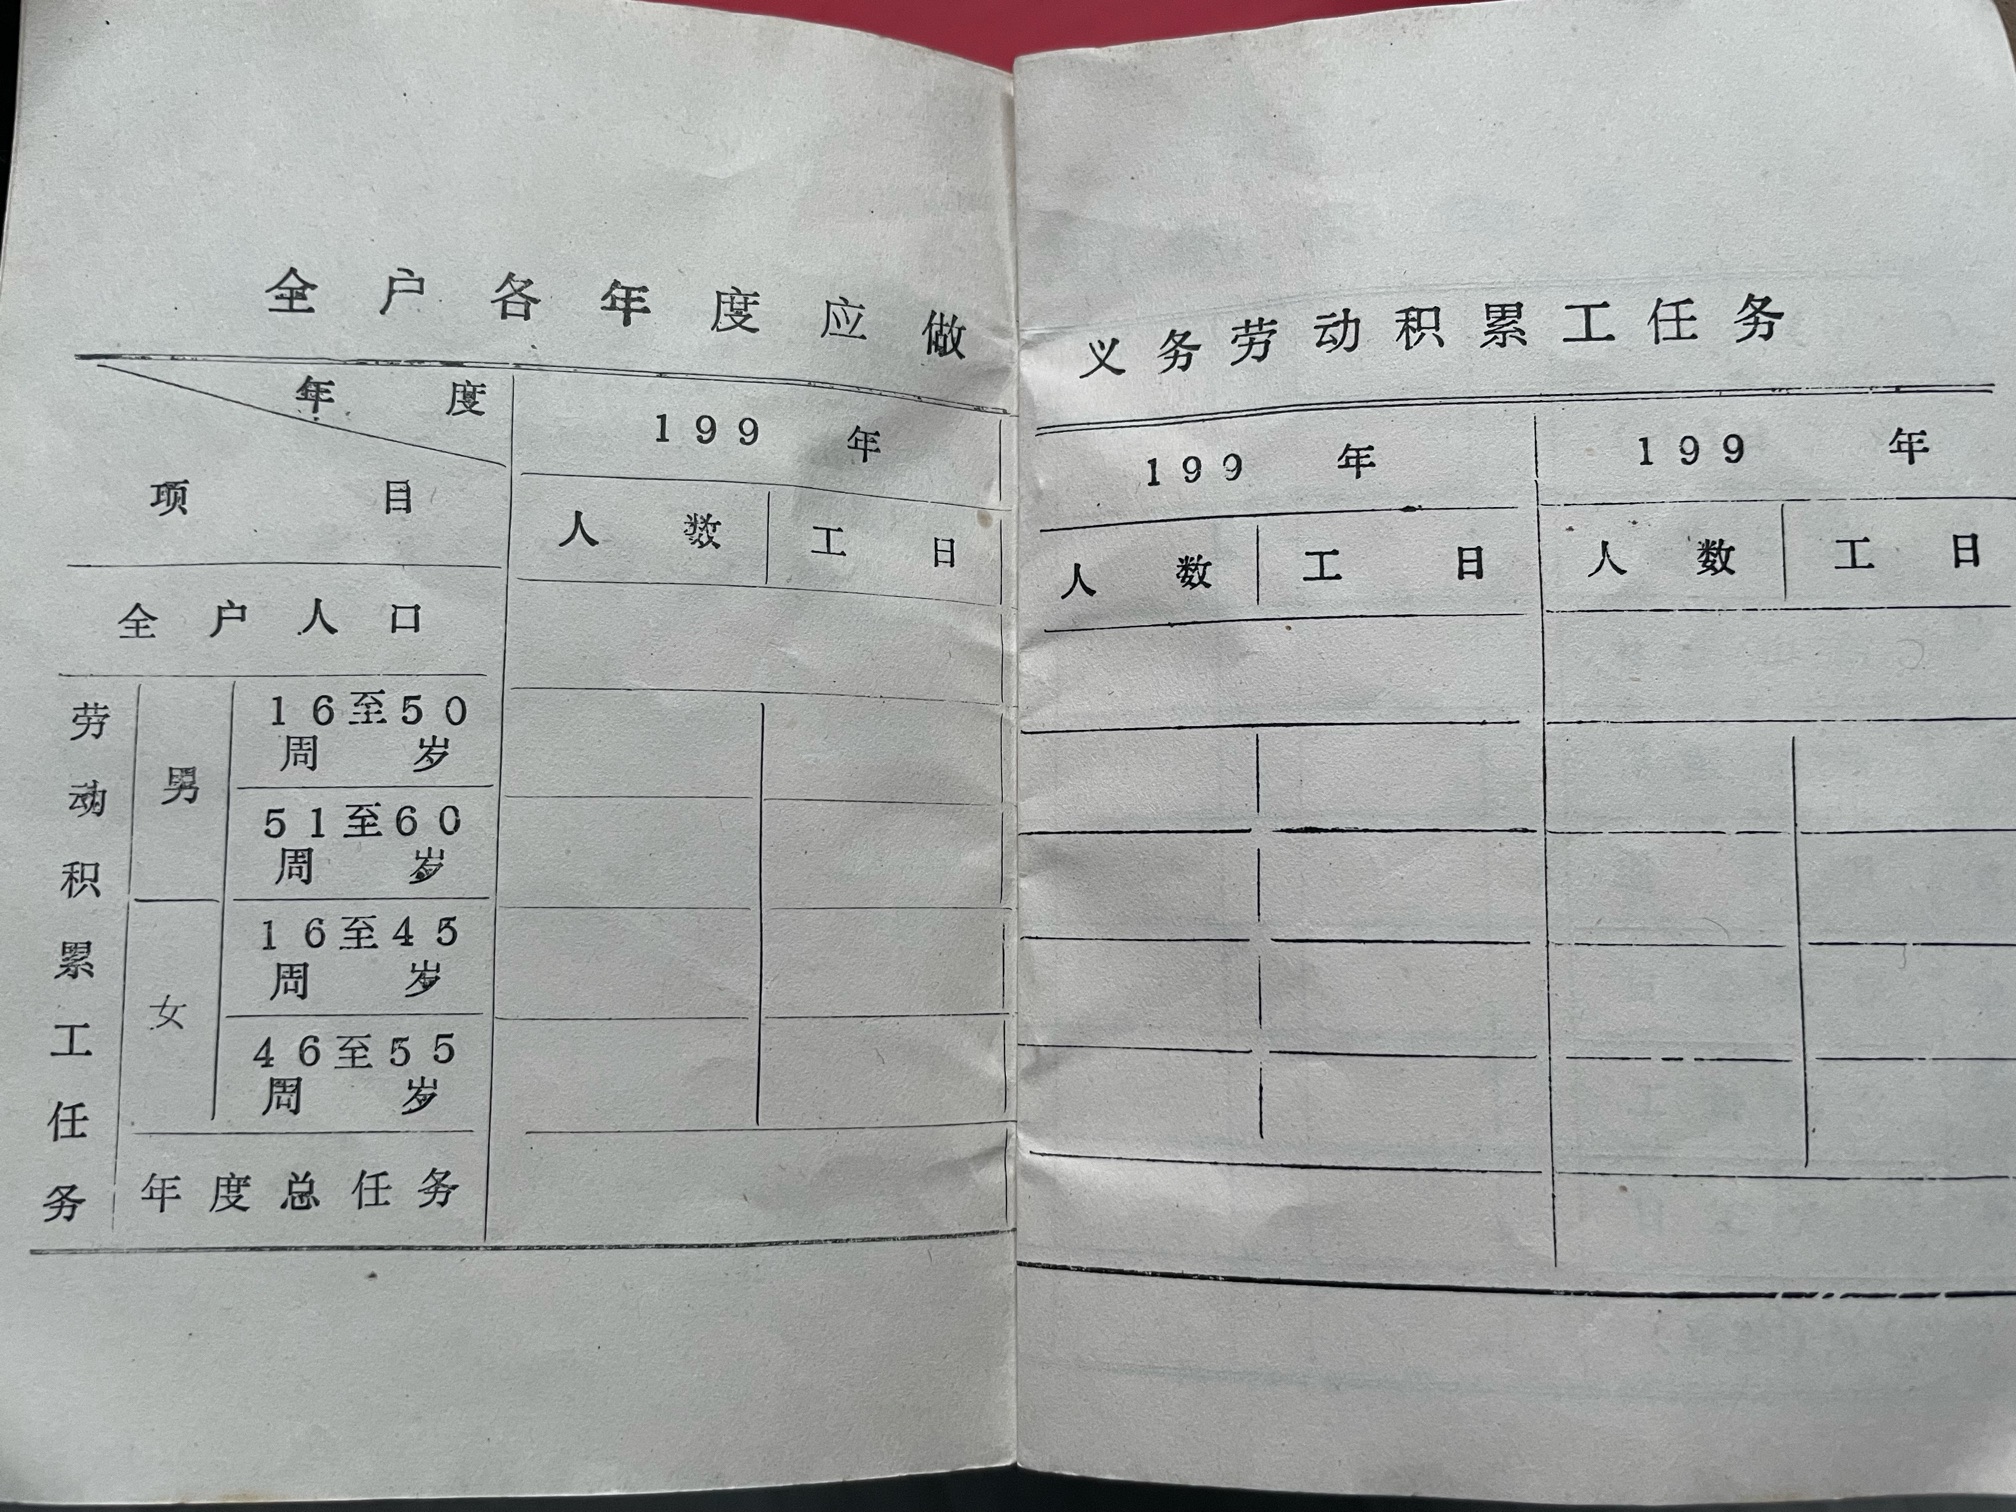 全户各年度应做义务劳动积累工任务
年度 199 年 199 年 199 年
项目 人数 工日 人数 工日 人数 工日
全户人口
劳动积累工任务
男
16至50周岁
51至60周岁
女
16至45周岁
46至55周岁
年度总任务